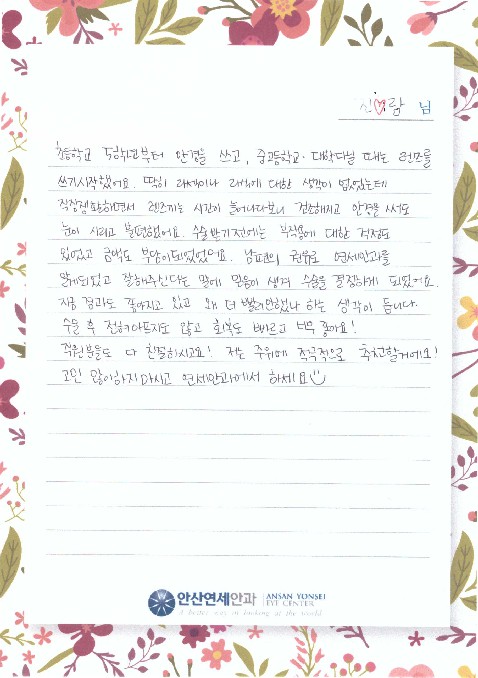 신♡람 님
초등학교 5학년부터 안경을 쓰고, 중고등학교·대학다닐 때는 렌즈를
쓰기시작했어요. 딱히 라섹이나 라식에 대한 생각이 없었는데
직장생활하면서 렌즈끼는 시간이 늘어나다보니 건조해지고 안경을 써도
눈이 시리고 불편했어요. 수술받기전에는 부작용에 대한 걱정도
있었고 금액도 부담이되었었어요. 남편의 권유로 연세안과를
알게되었고 잘해주신다는 말에 믿음이 생겨 수술을 결정하게 되었어요.
지금 경과도 좋아지고 있고 왜 더 빨리안했나 하는 생각이 듭니다.
수술 후 전혀아프지도 않고 회복도 빠르고 너무 좋아요!
직원분들도 다 친절하시고요! 저는 주위에 적극적으로 추천할거에요!
고민 많이하지마시고 연세안과에서 하세요
안산연세안과 ANSAN YONSEI EYE CENTER
A better way in looking at the world